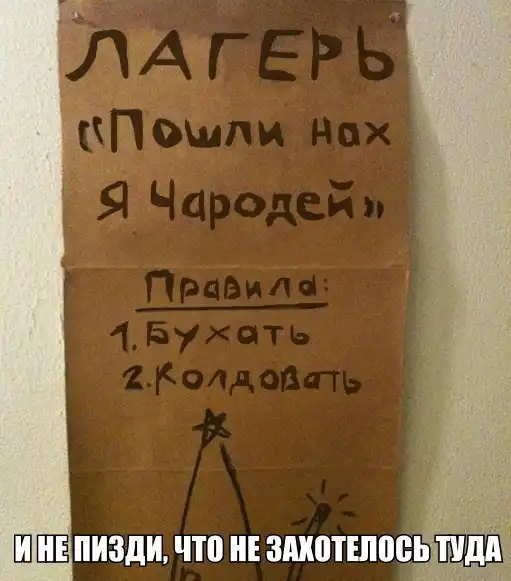 ЛАГЕРЬ
«Пошли нах
Я Чародей»
Правила:
1. Бухать
2. Колдовать
И НЕ ПИЗДИ, ЧТО НЕ ЗАХОТЕЛОСЬ ТУДА